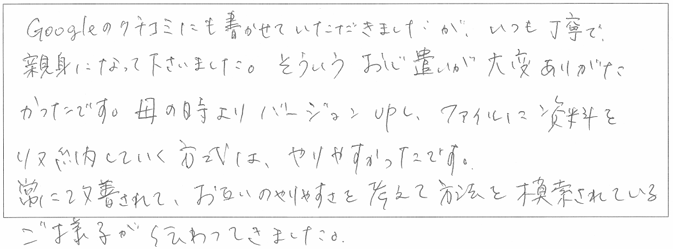 Googleのクチコミにも書かせていただきましたが、いつも丁寧で、
親身になって下さいました。そういうお心遣いが大変ありがた
かったです。母の時よりバージョンupし、ファイルに資料を
収納していく方式は、やりやすかったです。
常に改善されて、お互いのやりやすさを考えて方法を模索されている
ご様子が伝わってきました。